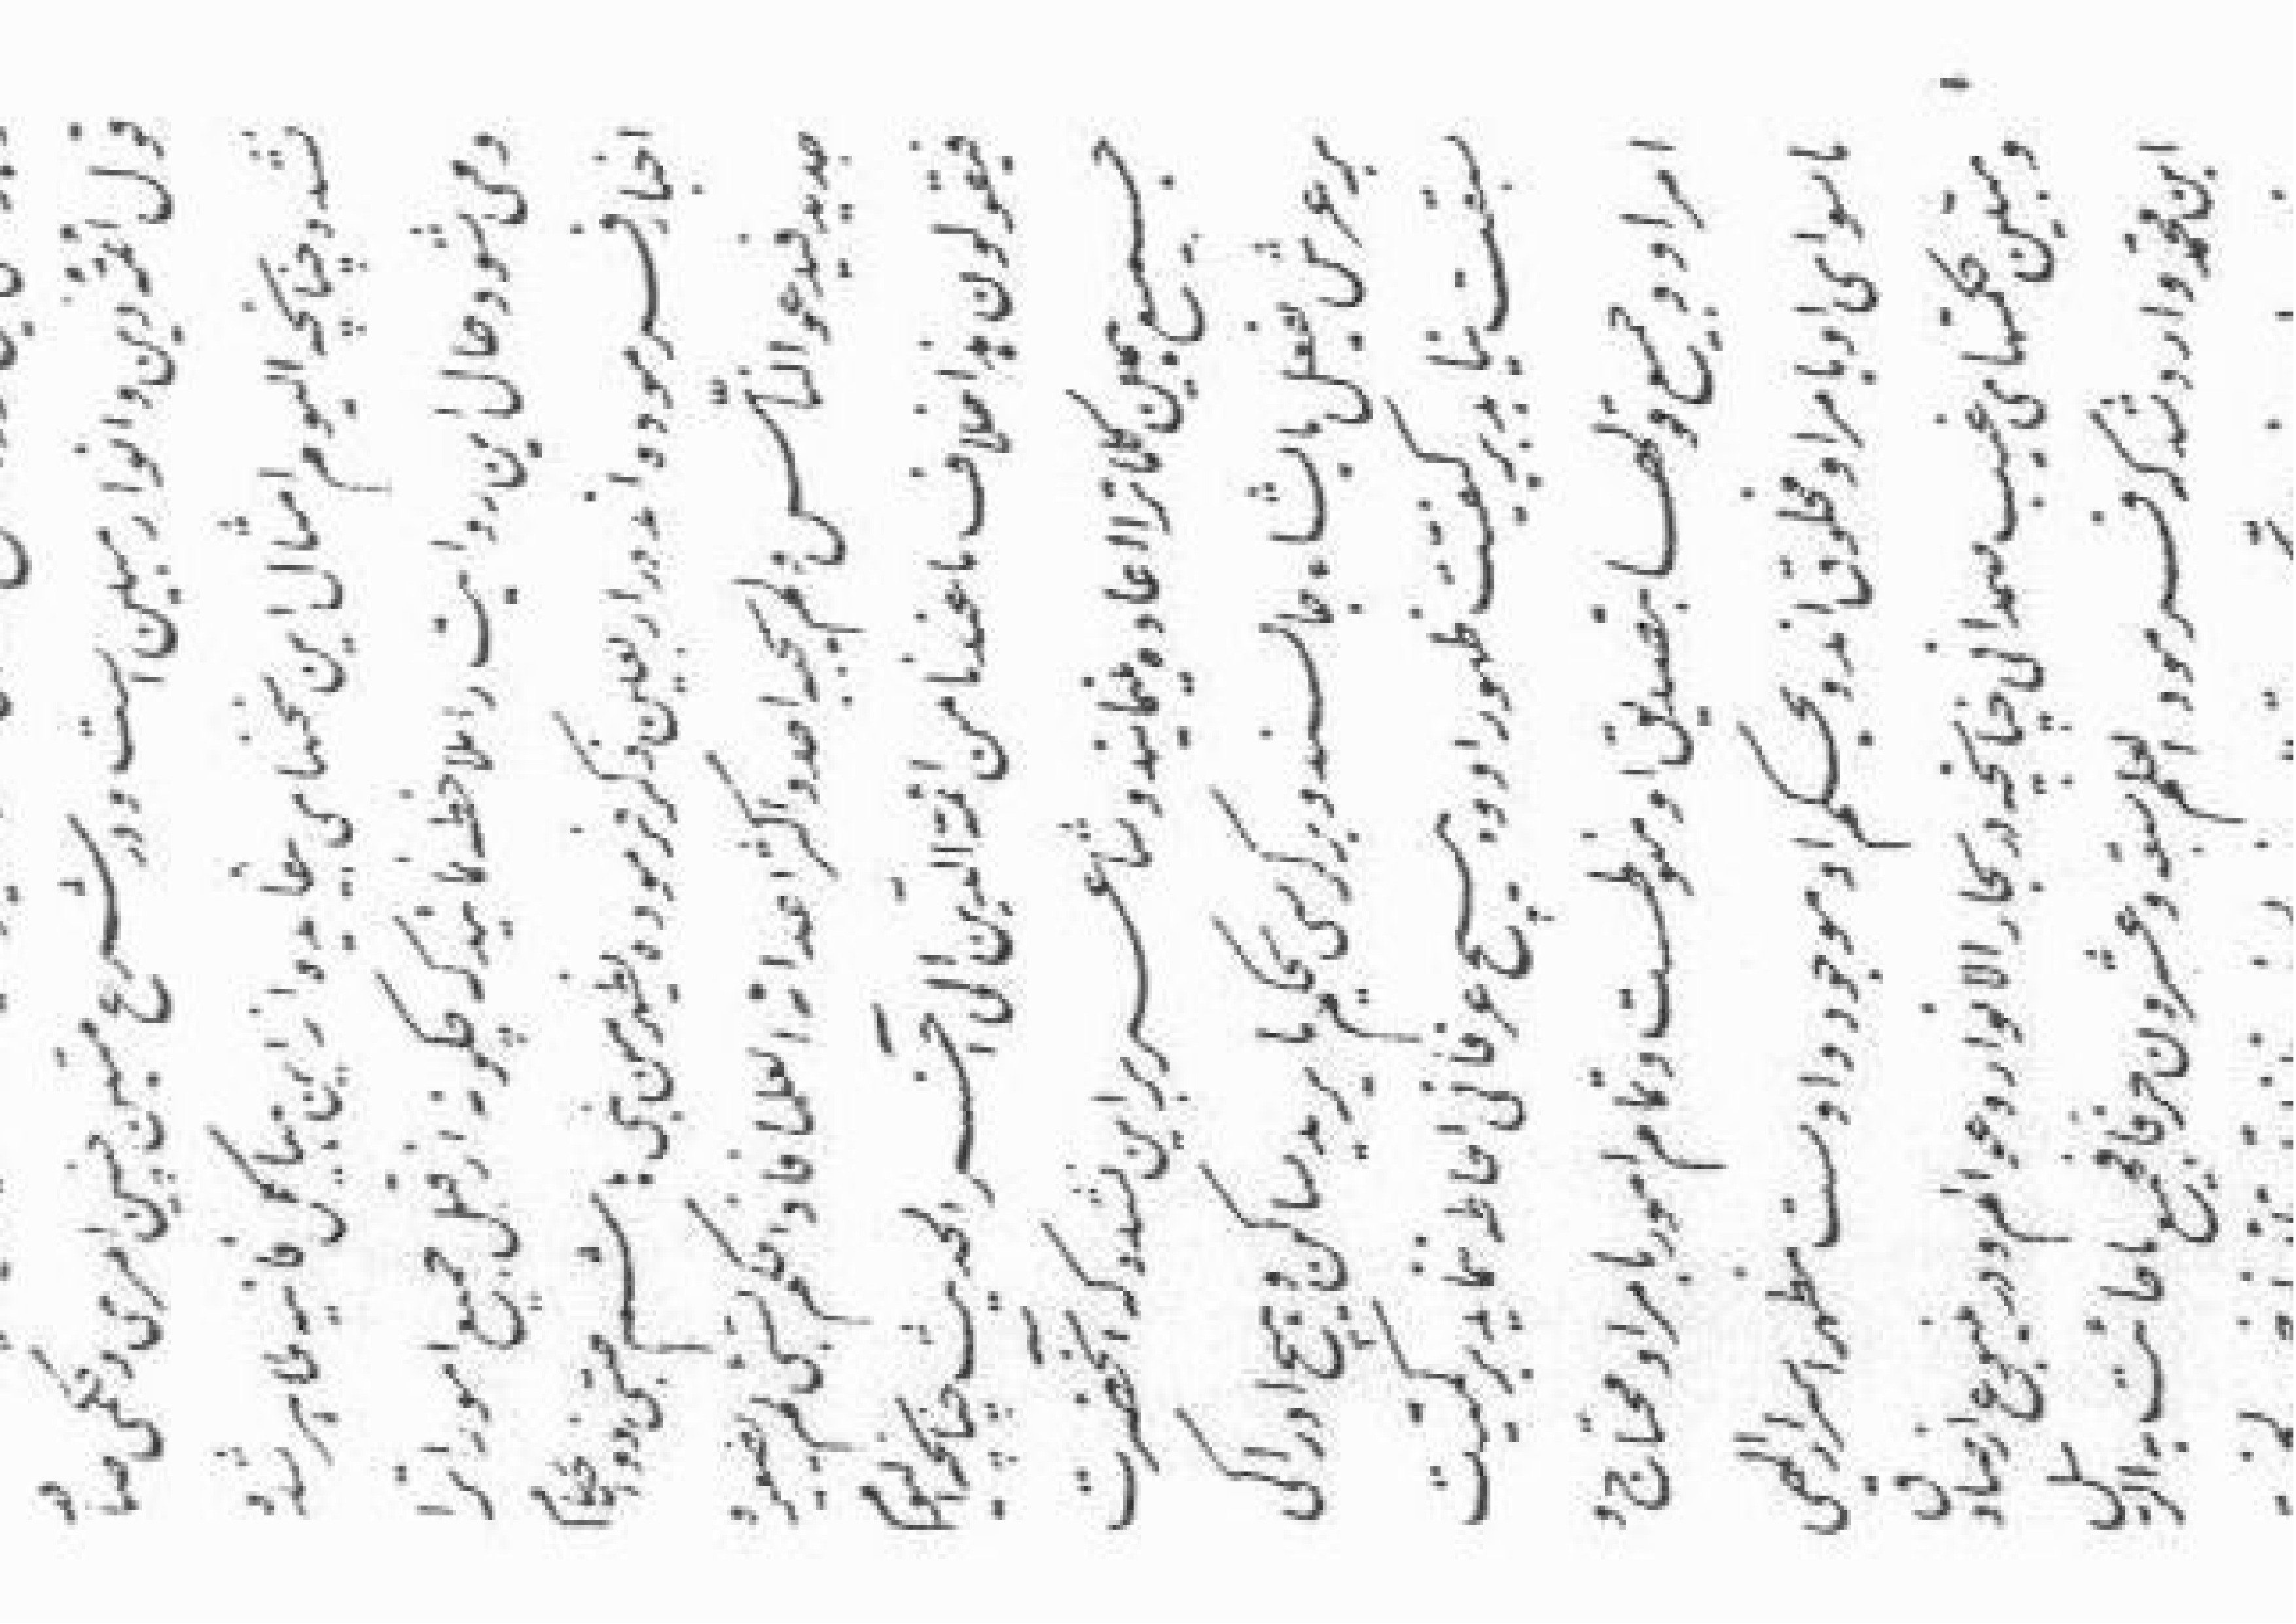 قول ائمه دین و انوار مبین است و در شرع متین چنین امری و حکمی صا
نشد و چنانکه الیوم امثال این سخنها می
و می شود و حال این روایت را ملاحظه نمائید که چگونه از قبل جمیع امور را
اخبار فرموده اند در اربعین ذکر فرموده یظهر من بنی هاشم صبی ذو کتاب و احکام
جدید فیدعو الناس و لم یجبه احد و اکثر اعدائه العلماء فاذا حکم بشیء لم یطیعوه
فیقولون هذا خلاف ما عندنا من ائمة الدین الی آخر الحدیث چنانچه الیوم
جمیع همین کلمات را اعاده مینمایند و شاعر بر این نشده که آنحضرت
بر عرش یفعل ما یشاء جالسند و بر کرسی یحکم ما یرید ساکن و هیچ ادراکی
سبقت نیابد بر کیفیت ظهور او و هیچ عرفانی احاطه ننماید بر کمیت
امر او و جمیع قولها بتصدیق او منوط است و تمام امور بامر او محتاج و
ماسوای او بامر او مخلوق اند و بحکم او موجود و اوست مظهر اسرار الهی
و مبین حکمتهای غیب صمدانی چنانچه در بحار الانوار و عوالم و در ینبوع از صادق
ابن محمد وارد شده که فرمود العلم سبعة و عشرون حرفا فجمیع ما جائت به الرسل